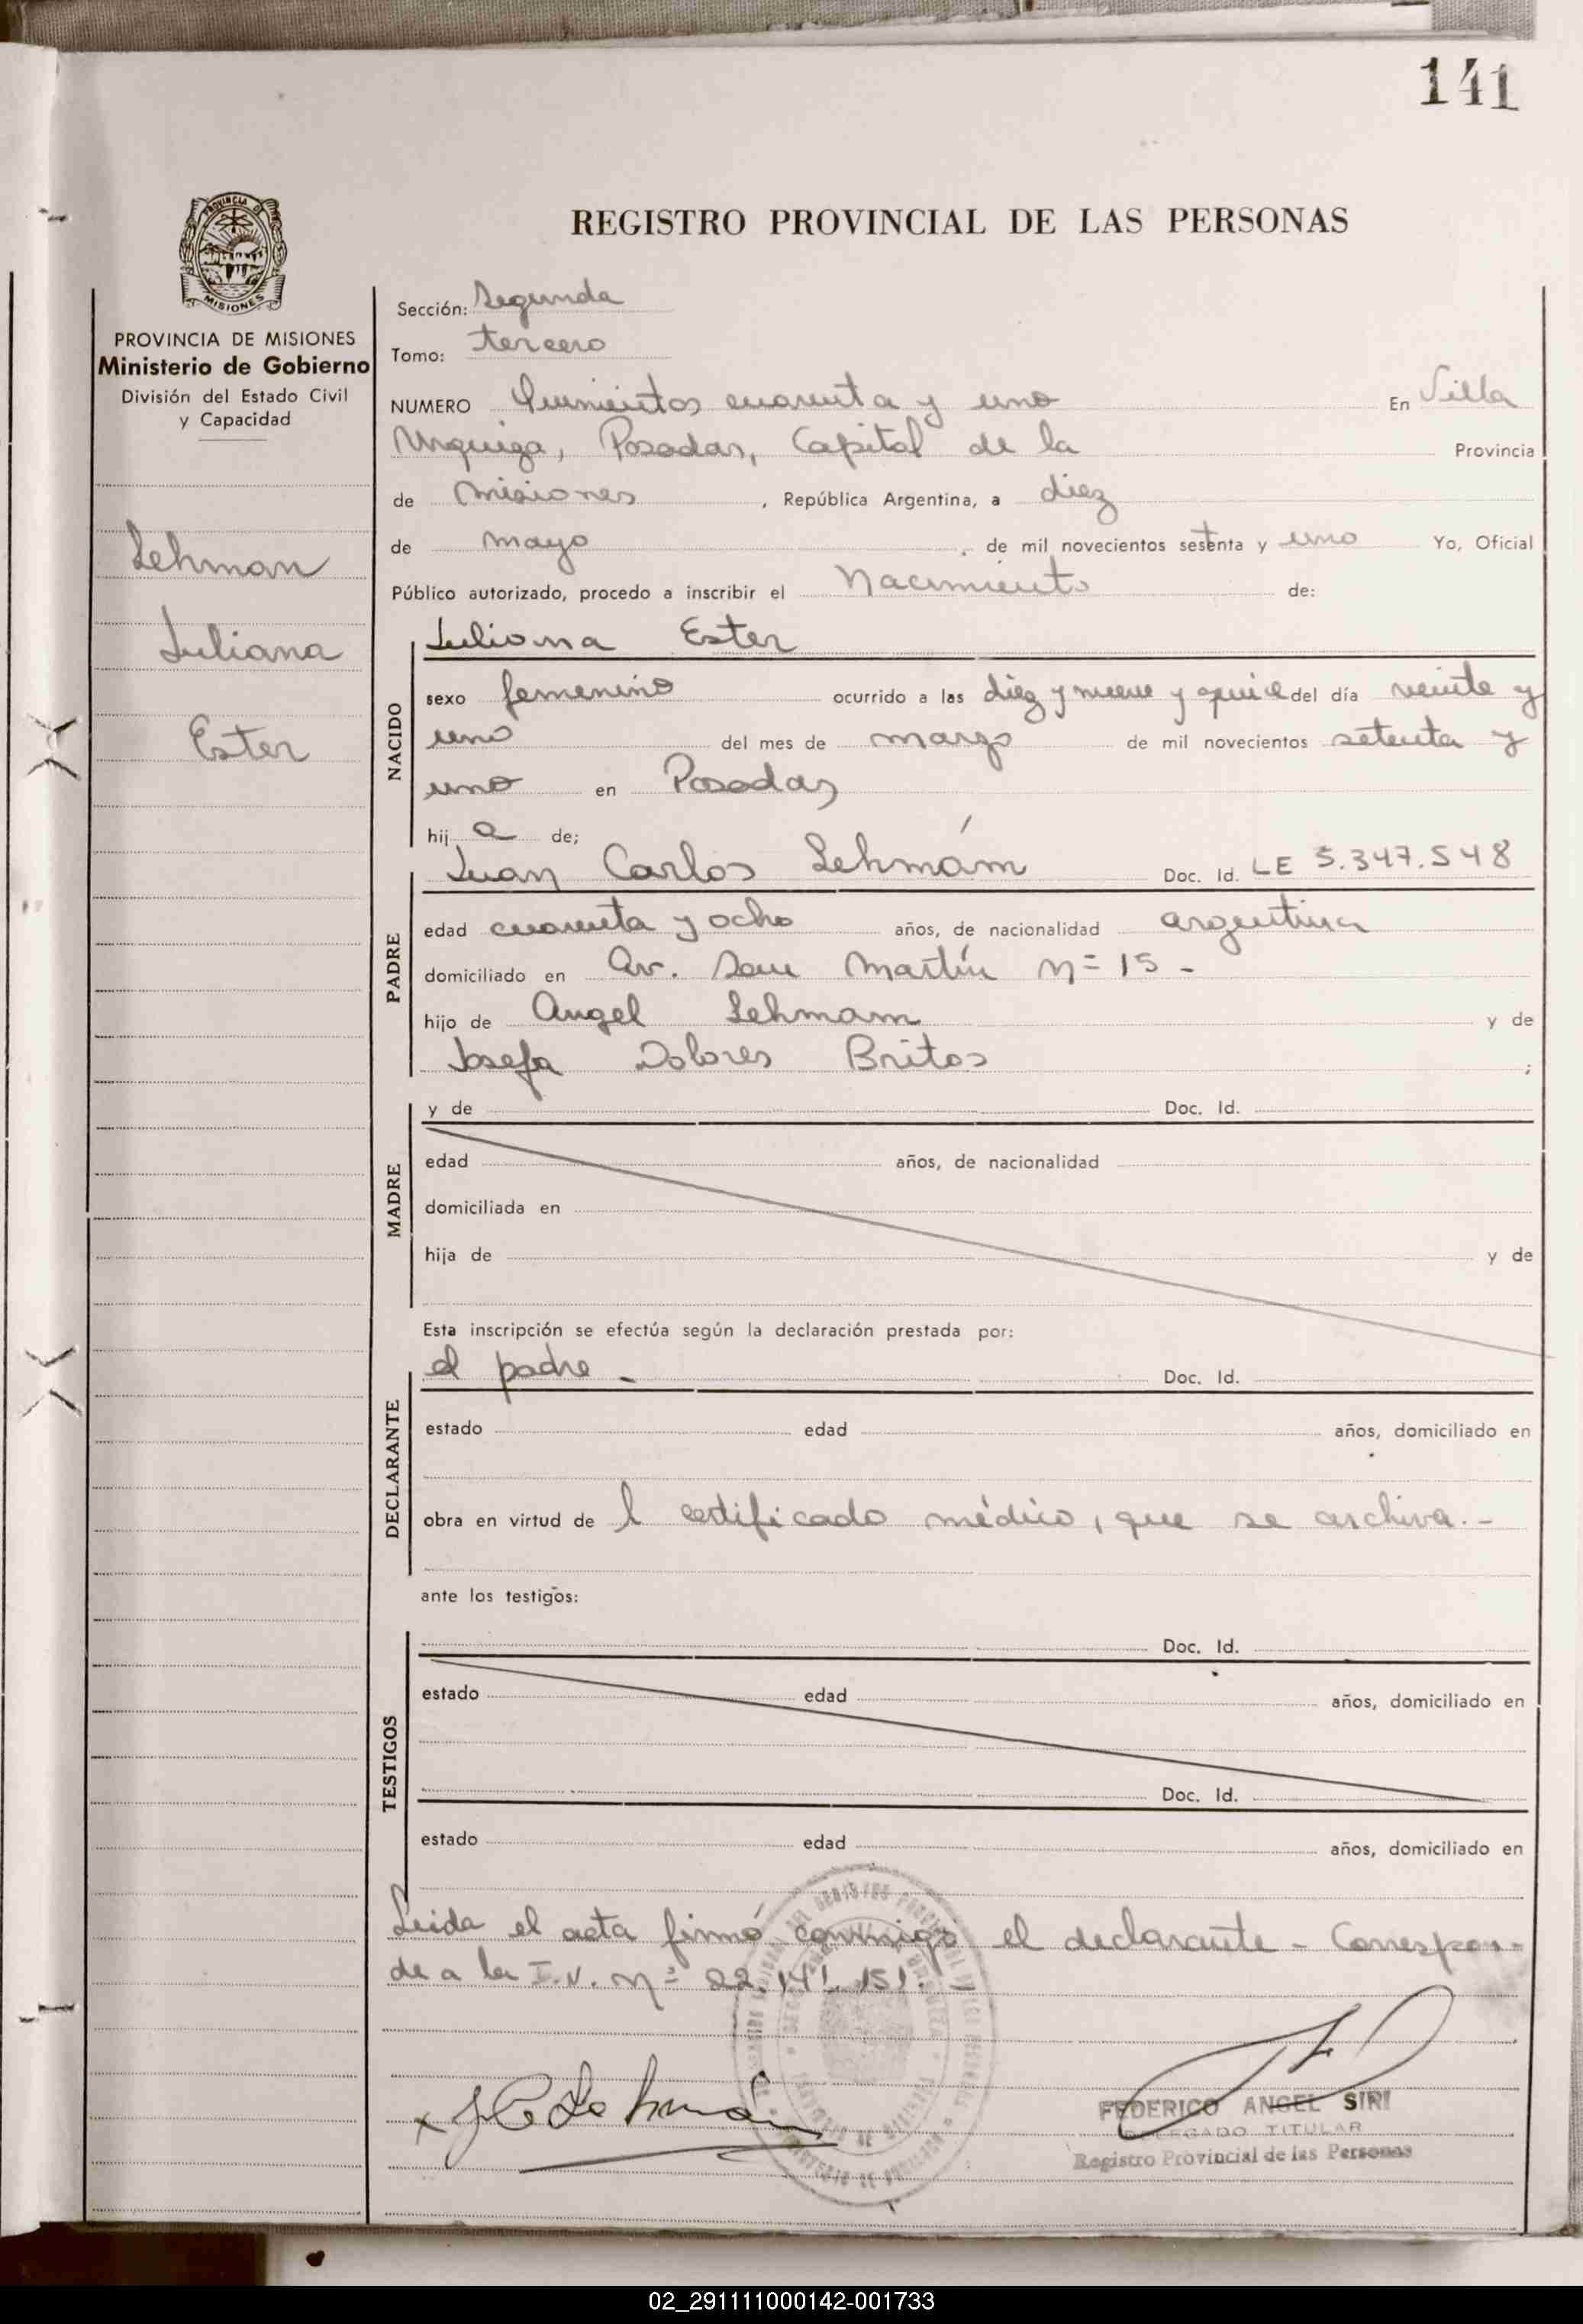 141
REGISTRO PROVINCIAL DE LAS PERSONAS
PROVINCIA DE MISIONES
Ministerio de Gobierno
División del Estado Civil
y Capacidad
Lehman
Juliana
Ester
Sección: Segunda
Tomo: tercero
NUMERO Quinientos cuarenta y uno En Villa
Urquiza, Posadas, Capital de la Provincia
de Misiones, República Argentina, a diez
de mayo de mil novecientos setenta y uno Yo, Oficial
Público autorizado, procedo a inscribir el Nacimiento de:
NACIDO
Juliana Ester
sexo femenino ocurrido a las diez y nueve y quice del día veinte y
uno del mes de marzo de mil novecientos setenta y
uno en Posadas
hij a de;
PADRE
Juan Carlos Lehmám Doc. Id. LE 5.347.548
edad cuarenta y ocho años, de nacionalidad argentina
domiciliado en Av. San Martín Nº 15 -
hijo de Angel Lehmam y de
Josefa Dolores Britos ;
MADRE
y de Doc. Id.
edad años, de nacionalidad
domiciliada en
hija de y de
Esta inscripción se efectúa según la declaración prestada por:
DECLARANTE
el padre - Doc. Id.
estado edad años, domiciliado en
obra en virtud de l certificado médico, que se archiva.-
ante los testigos:
TESTIGOS
Doc. Id.
estado edad años, domiciliado en
Doc. Id.
estado edad años, domiciliado en
Leida el acta firmó conmigo el declarante - Correspon-
de a la I.N. Nº 22.141.151.-
x J C Lehmán
FEDERICO ANGEL SIRI
DELEGADO TITULAR
Registro Provincial de las Personas
02_291111000142-001733